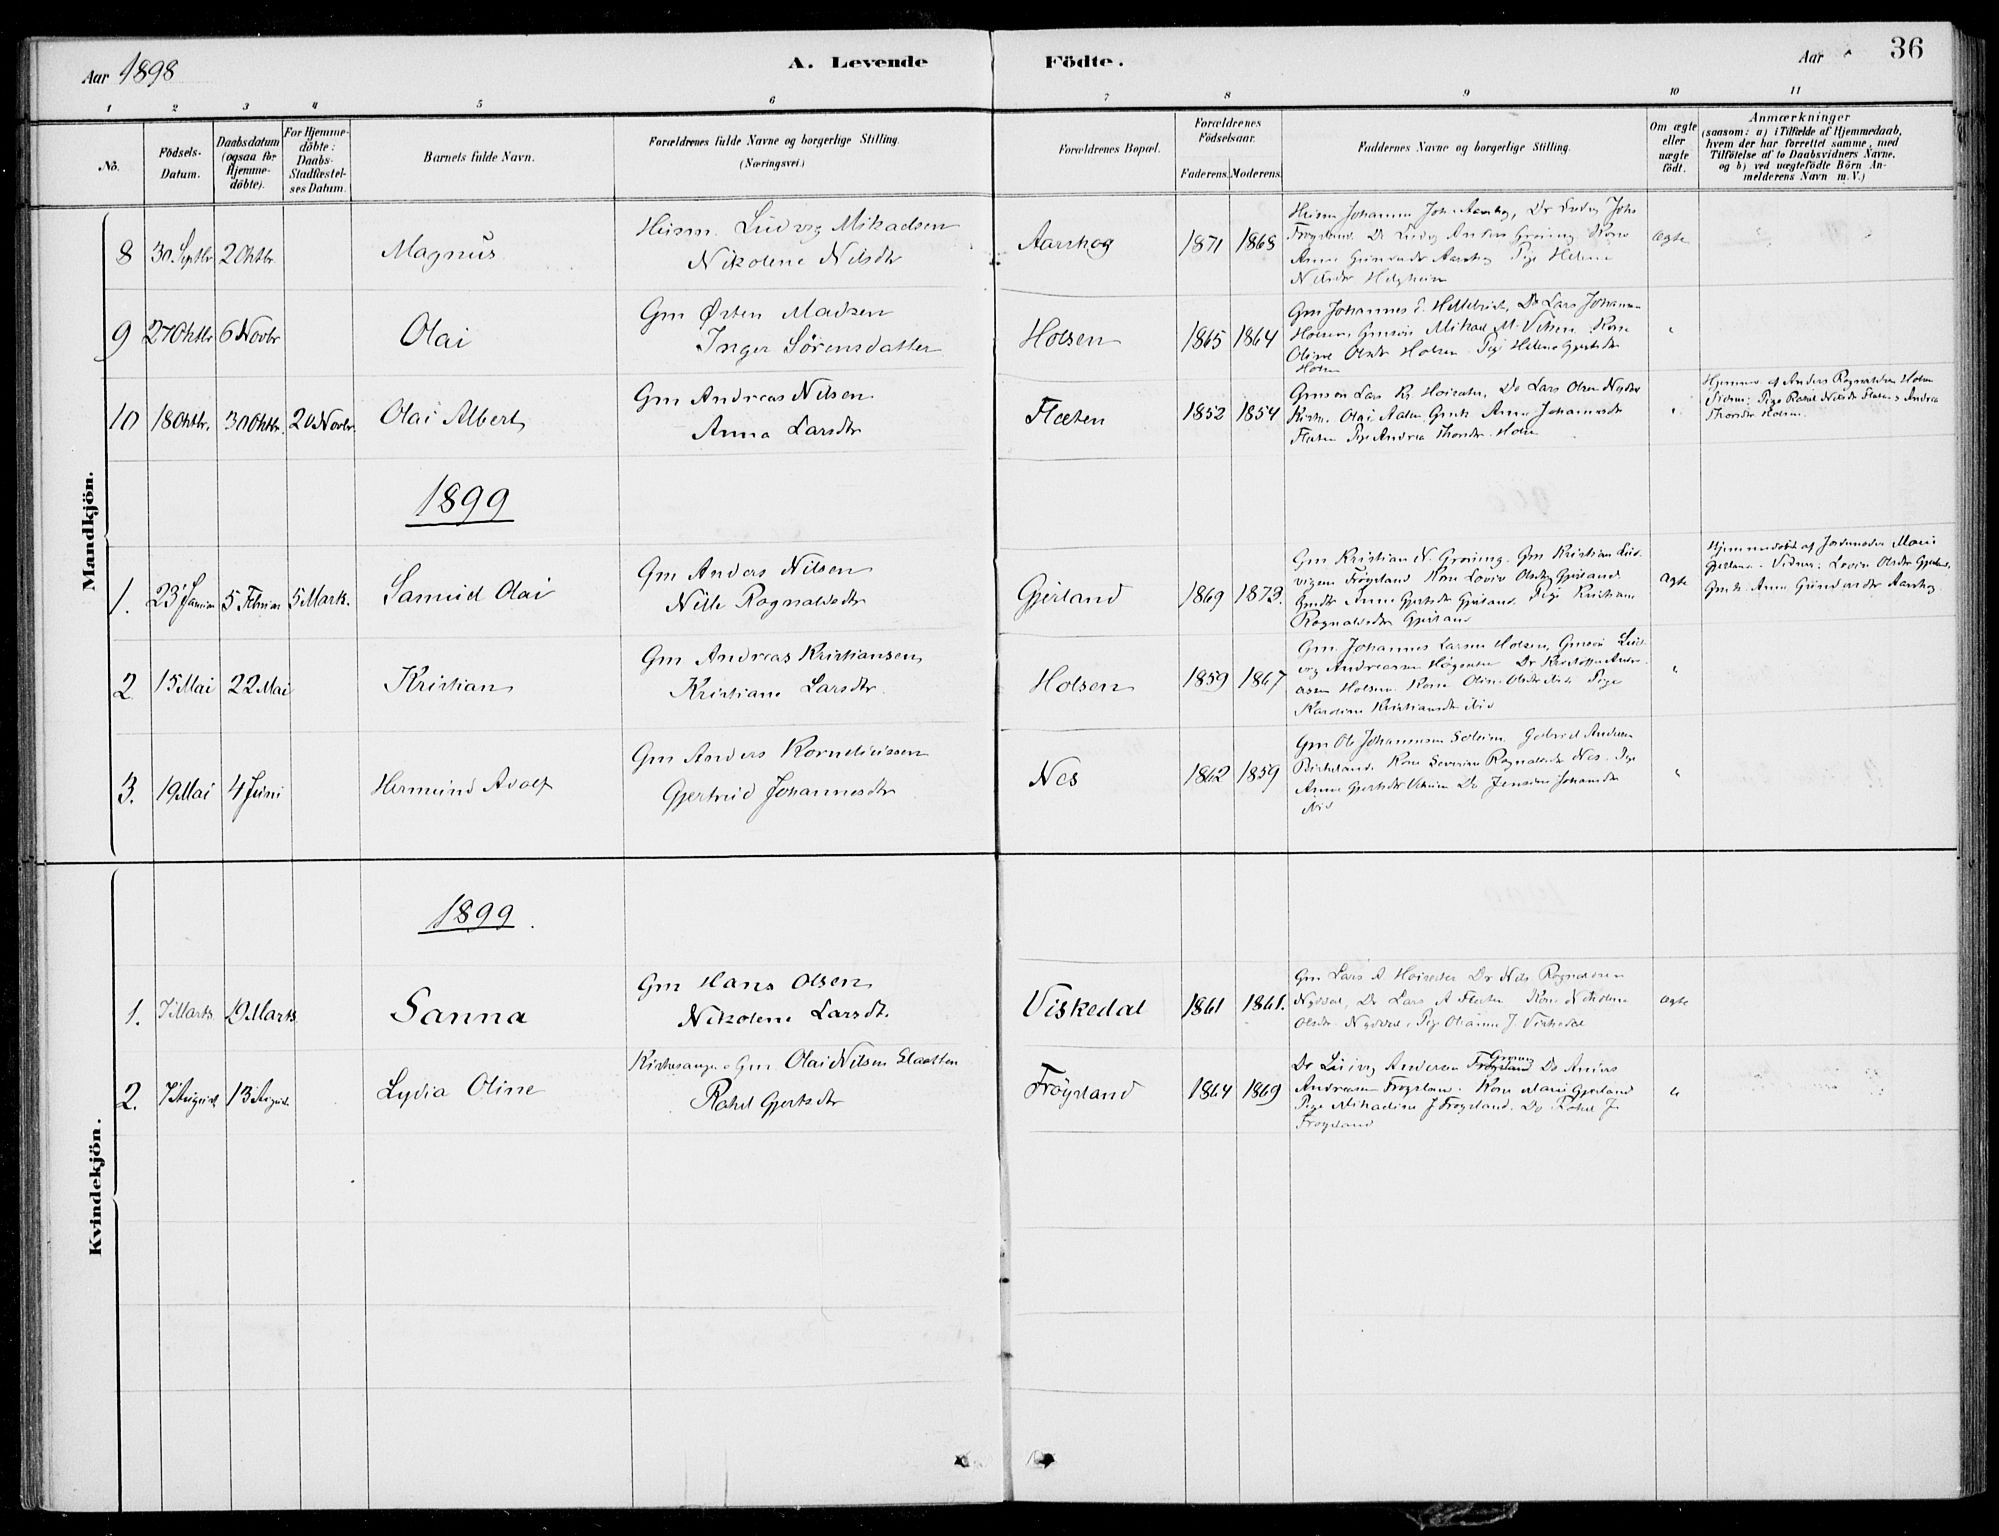 Aar 1898
A. Levende
Födte.
Aar
36
1 2 3 4 5 6 7 8 9 10 11
No.
Födsels-Datum.
Daabsdatum (ogsaa for Hjemme-döbte).
For Hjemme-döbte: Daabs-Stadfæstel-ses Datum.
Barnets fulde Navn.
Forældrenes fulde Navne og borgerlige Stilling. (Næringsvei.)
Forældrenes Bopæl.
Forældrenes Födselsaar.
Faderens. Moderens.
Faddernes Navne og borgerlige Stilling.
Om ægte eller uægte födt.
Anmærkninger
(saasom: a) i Tilfælde af Hjemmedaab, hvem der har forrettet samme, med Tilföielse af to Daabsvidners Navne, og b) ved uægtefödte Börn An-melderens Navn m. V.)
Mandkjön.
8 30. Septbr 2 Oktbr. Magnus
Heism. Ludvig Mikaelsen
Nikolene Nilsdtr
Aarskog 1871 1868
Heism Johannes Joh Aarskog, Dr Ludvig Johs
Frøysland. Do Ludvig Anders Grøning Kone
Anne Gunvardr Aarskog Pige Helene
Nilsdr Helgheim
Ægte
9 27 Oktbr 6 Novbr Olai
Gm Østen Madsen
Inger Sørensdatter
Holsen 1865 1864
Gm Johannes E. Do Lars Johannes
Holsen Gmsøn Mikael M. Kone
Oline Olsdr Holsen. Pige Helene Gjertsdr
Holsen
"
10 18 Oktbr. 30 Oktbr. 20 Novbr. Olai Albert
Gm Andreas Nilsen
Anna Larsdtr
Flaten 1852 1854
Gmsøn Lars R. Do Lars Olsen
Olai Gmk Anne Johannesdr
Flaten Pige Andrea Thorsdr. Holsen
"
Hjemmed. af Anders Rognaldsen Holsen
Vidner: Pige Rakel Nilsdr Flaten & Andrea
Thorsdr Holsen.
1899
1. 23 Januar 5 Februar 5 Marts. Samuel Olai
Gm Anders Nilsen
Nille Rognaldsdtr
Gjerland 1869 1873.
Gm Kristian N. Grøning. Gm Kristian Lud-
vigsen Frøysland Kone Lovise Olsdtr Gjerland.
Anne Gjertsdr Gjerland. Pige Kristiane
Rognaldsdr Gjerland
Ægte
Hjemmedøbt af Jordemoder Marie
Gjerland. Vidner: Lovise Olsdr Gjerland.
Gmk. Anne Gunvardr Aarskog.
2 15 Mai 22 Mai Kristian
Gm Andreas Kristiansen
Kristiane Larsdtr.
Holsen 1859 1867
Gm Johannes Larsen Holsen, Gmsøn Lud-
vig Andreassen Dr Kristoffer Andre-
assen Holsen. Kone Oline Olsdr ibid Pige
Karoline Kristiansdr ibid
"
3. 19 Mai 4 Juni Hermund Adolf
Gm Anders Korneliussen
Gjertrud Johannesdtr
Nes 1862 1859
Gm Ole Johannesen Solheim Gabriel Andersen
Birkeland. Kone Severine Rognaldsdtr Nes. Pige
Anne Gjertsdr Do Jensine Johansdr
Nes
"
Kvindekjön.
1899.
1. 7 Marts. 19 Marts Sanna
Gm Hans Olsen
Nikolene Larsdt.
Viskedal 1861 1861.
Gm Lars A Dr Nils Rognaldsen
Nydal, Dr Lars A Flaten Kone Nikolene
Olsdr. Nydal, Pige Olianna J. Viskedal
Ægte
2. 7 August 13 August. Lydia Oline
Kirkesanger Gm Olai Nilsen Slaatten
Rakel Gjertsdtr
Frøysland 1864 1869
Dr Ludvig Andersen Frøysland Grøning Do Anders
Andreassen Frøysland. Kone Marie Gjerland
Pige Mikaeline J Frøysland. Do Rakel J.
Frøysland
"